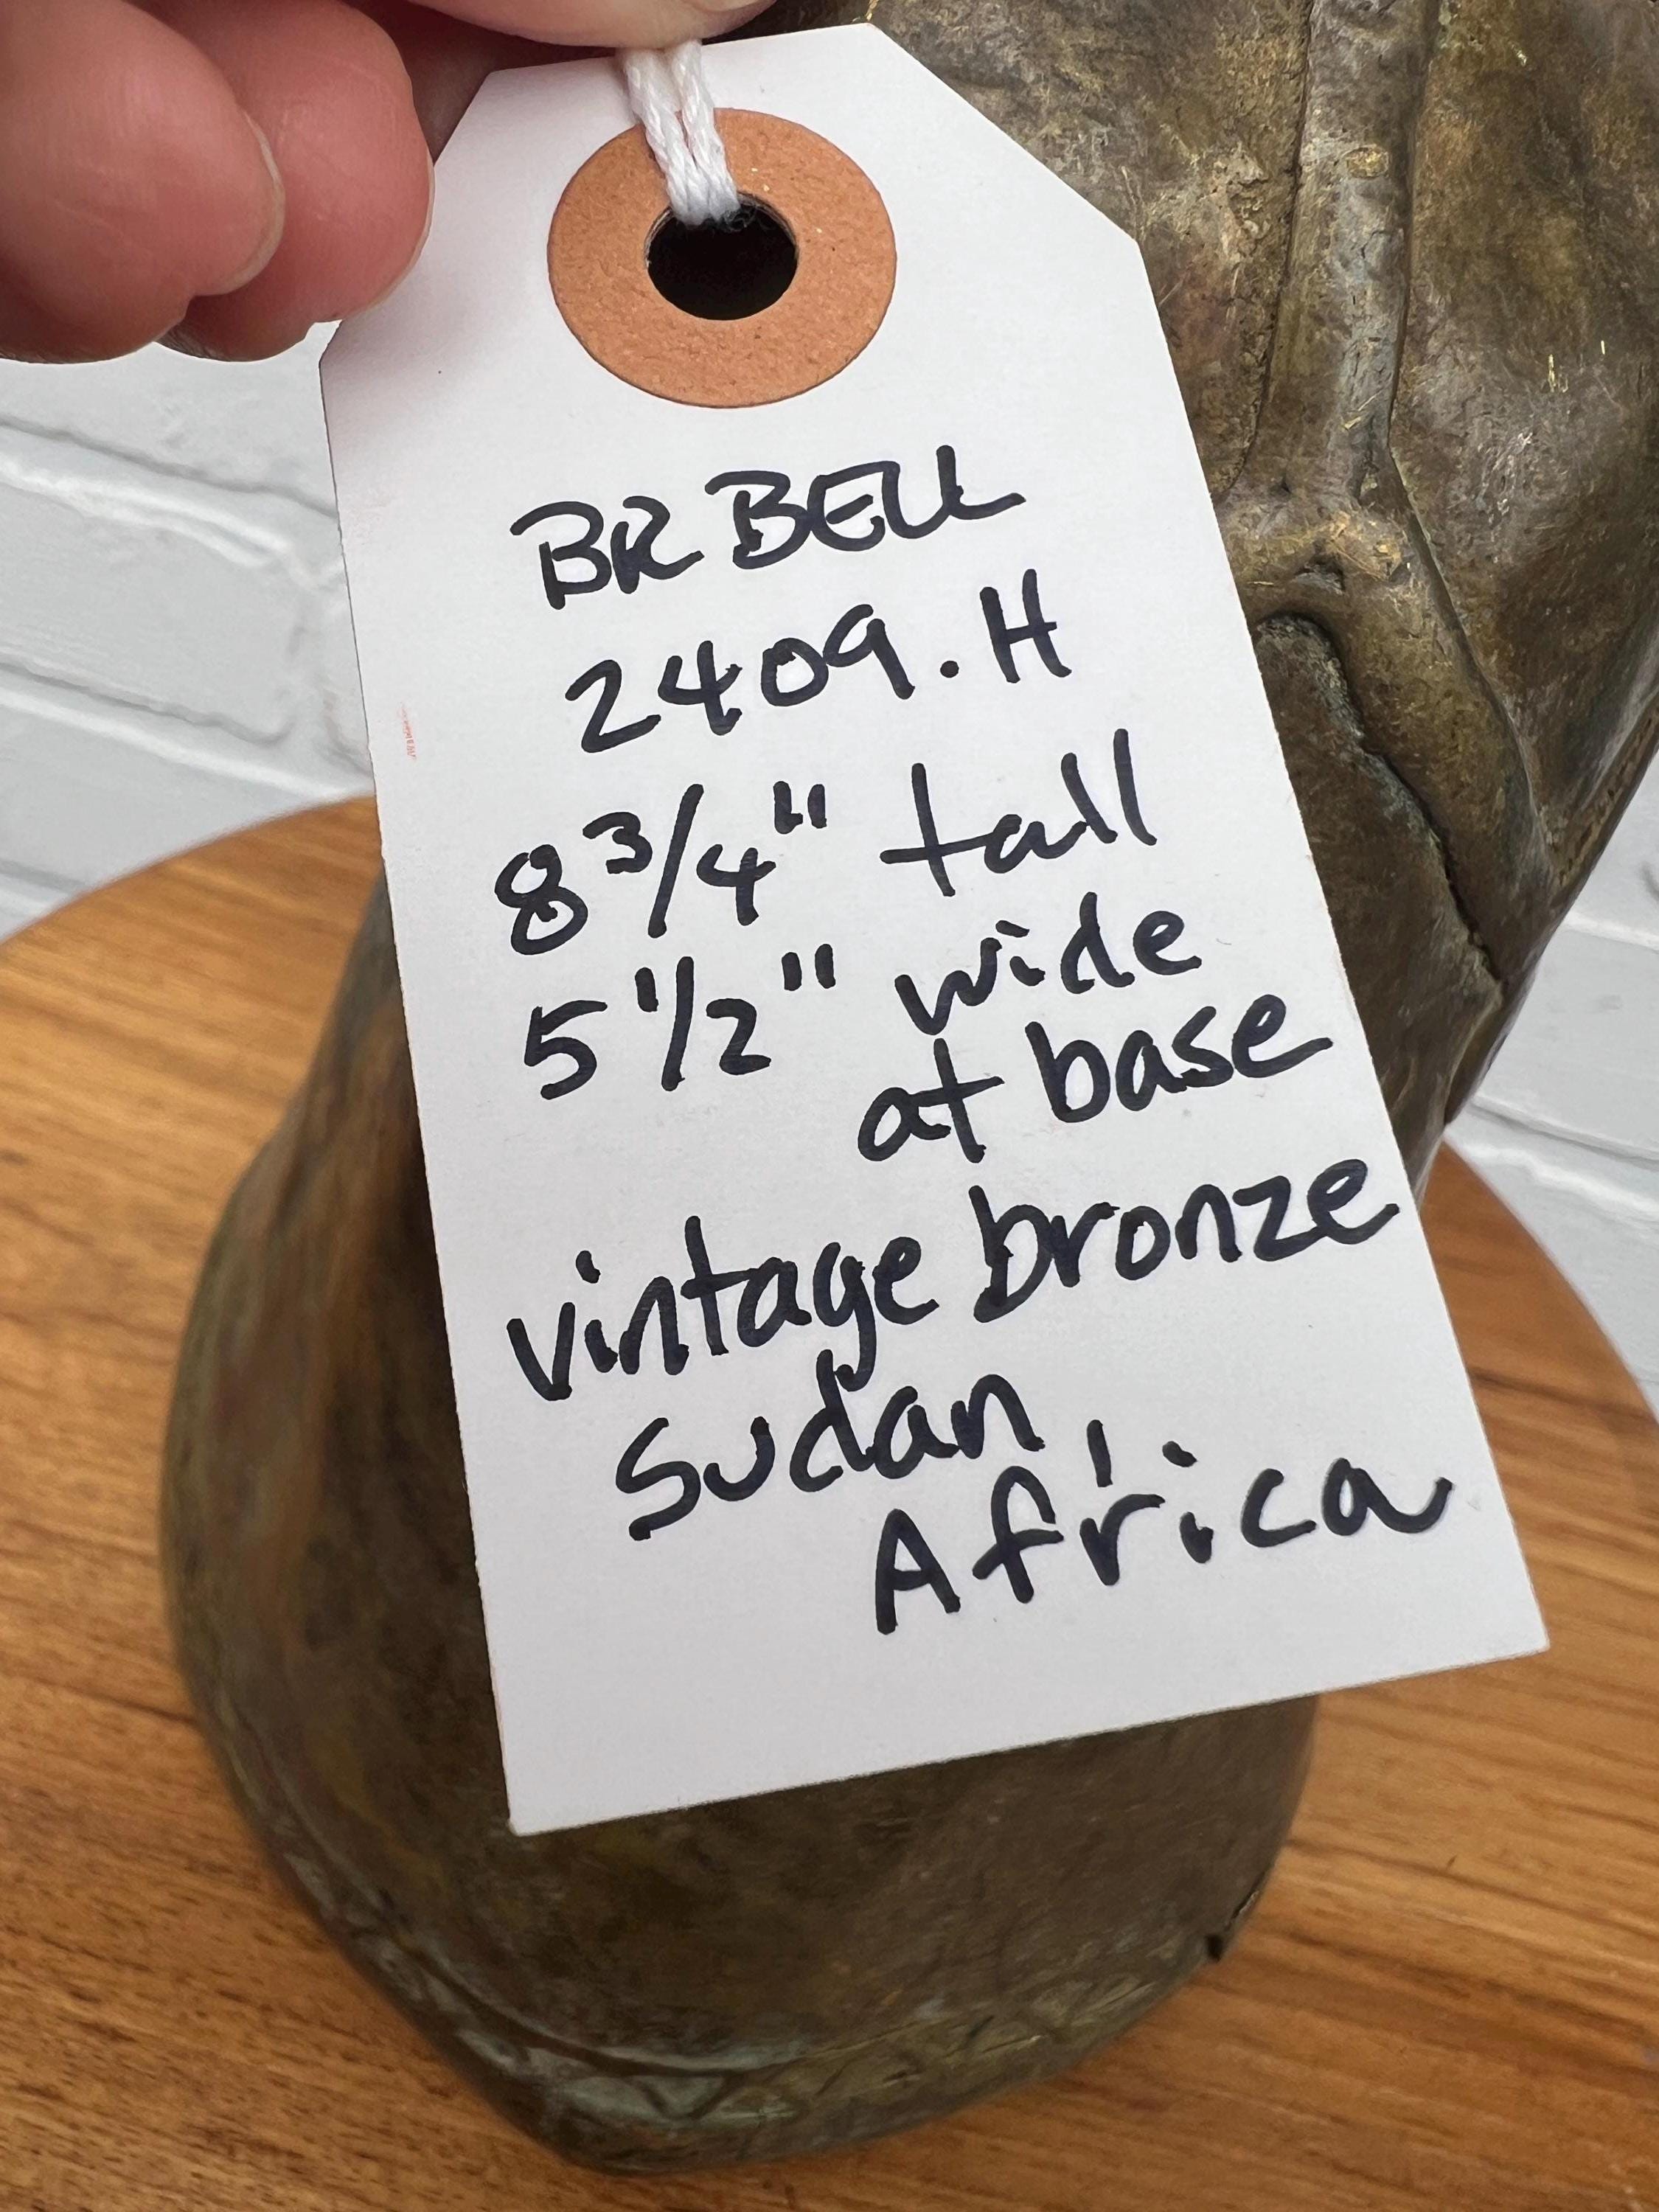 BR BELL
2409.H
8 3/4" tall
5 1/2" wide
at base
vintage bronze
Sudan,
Africa